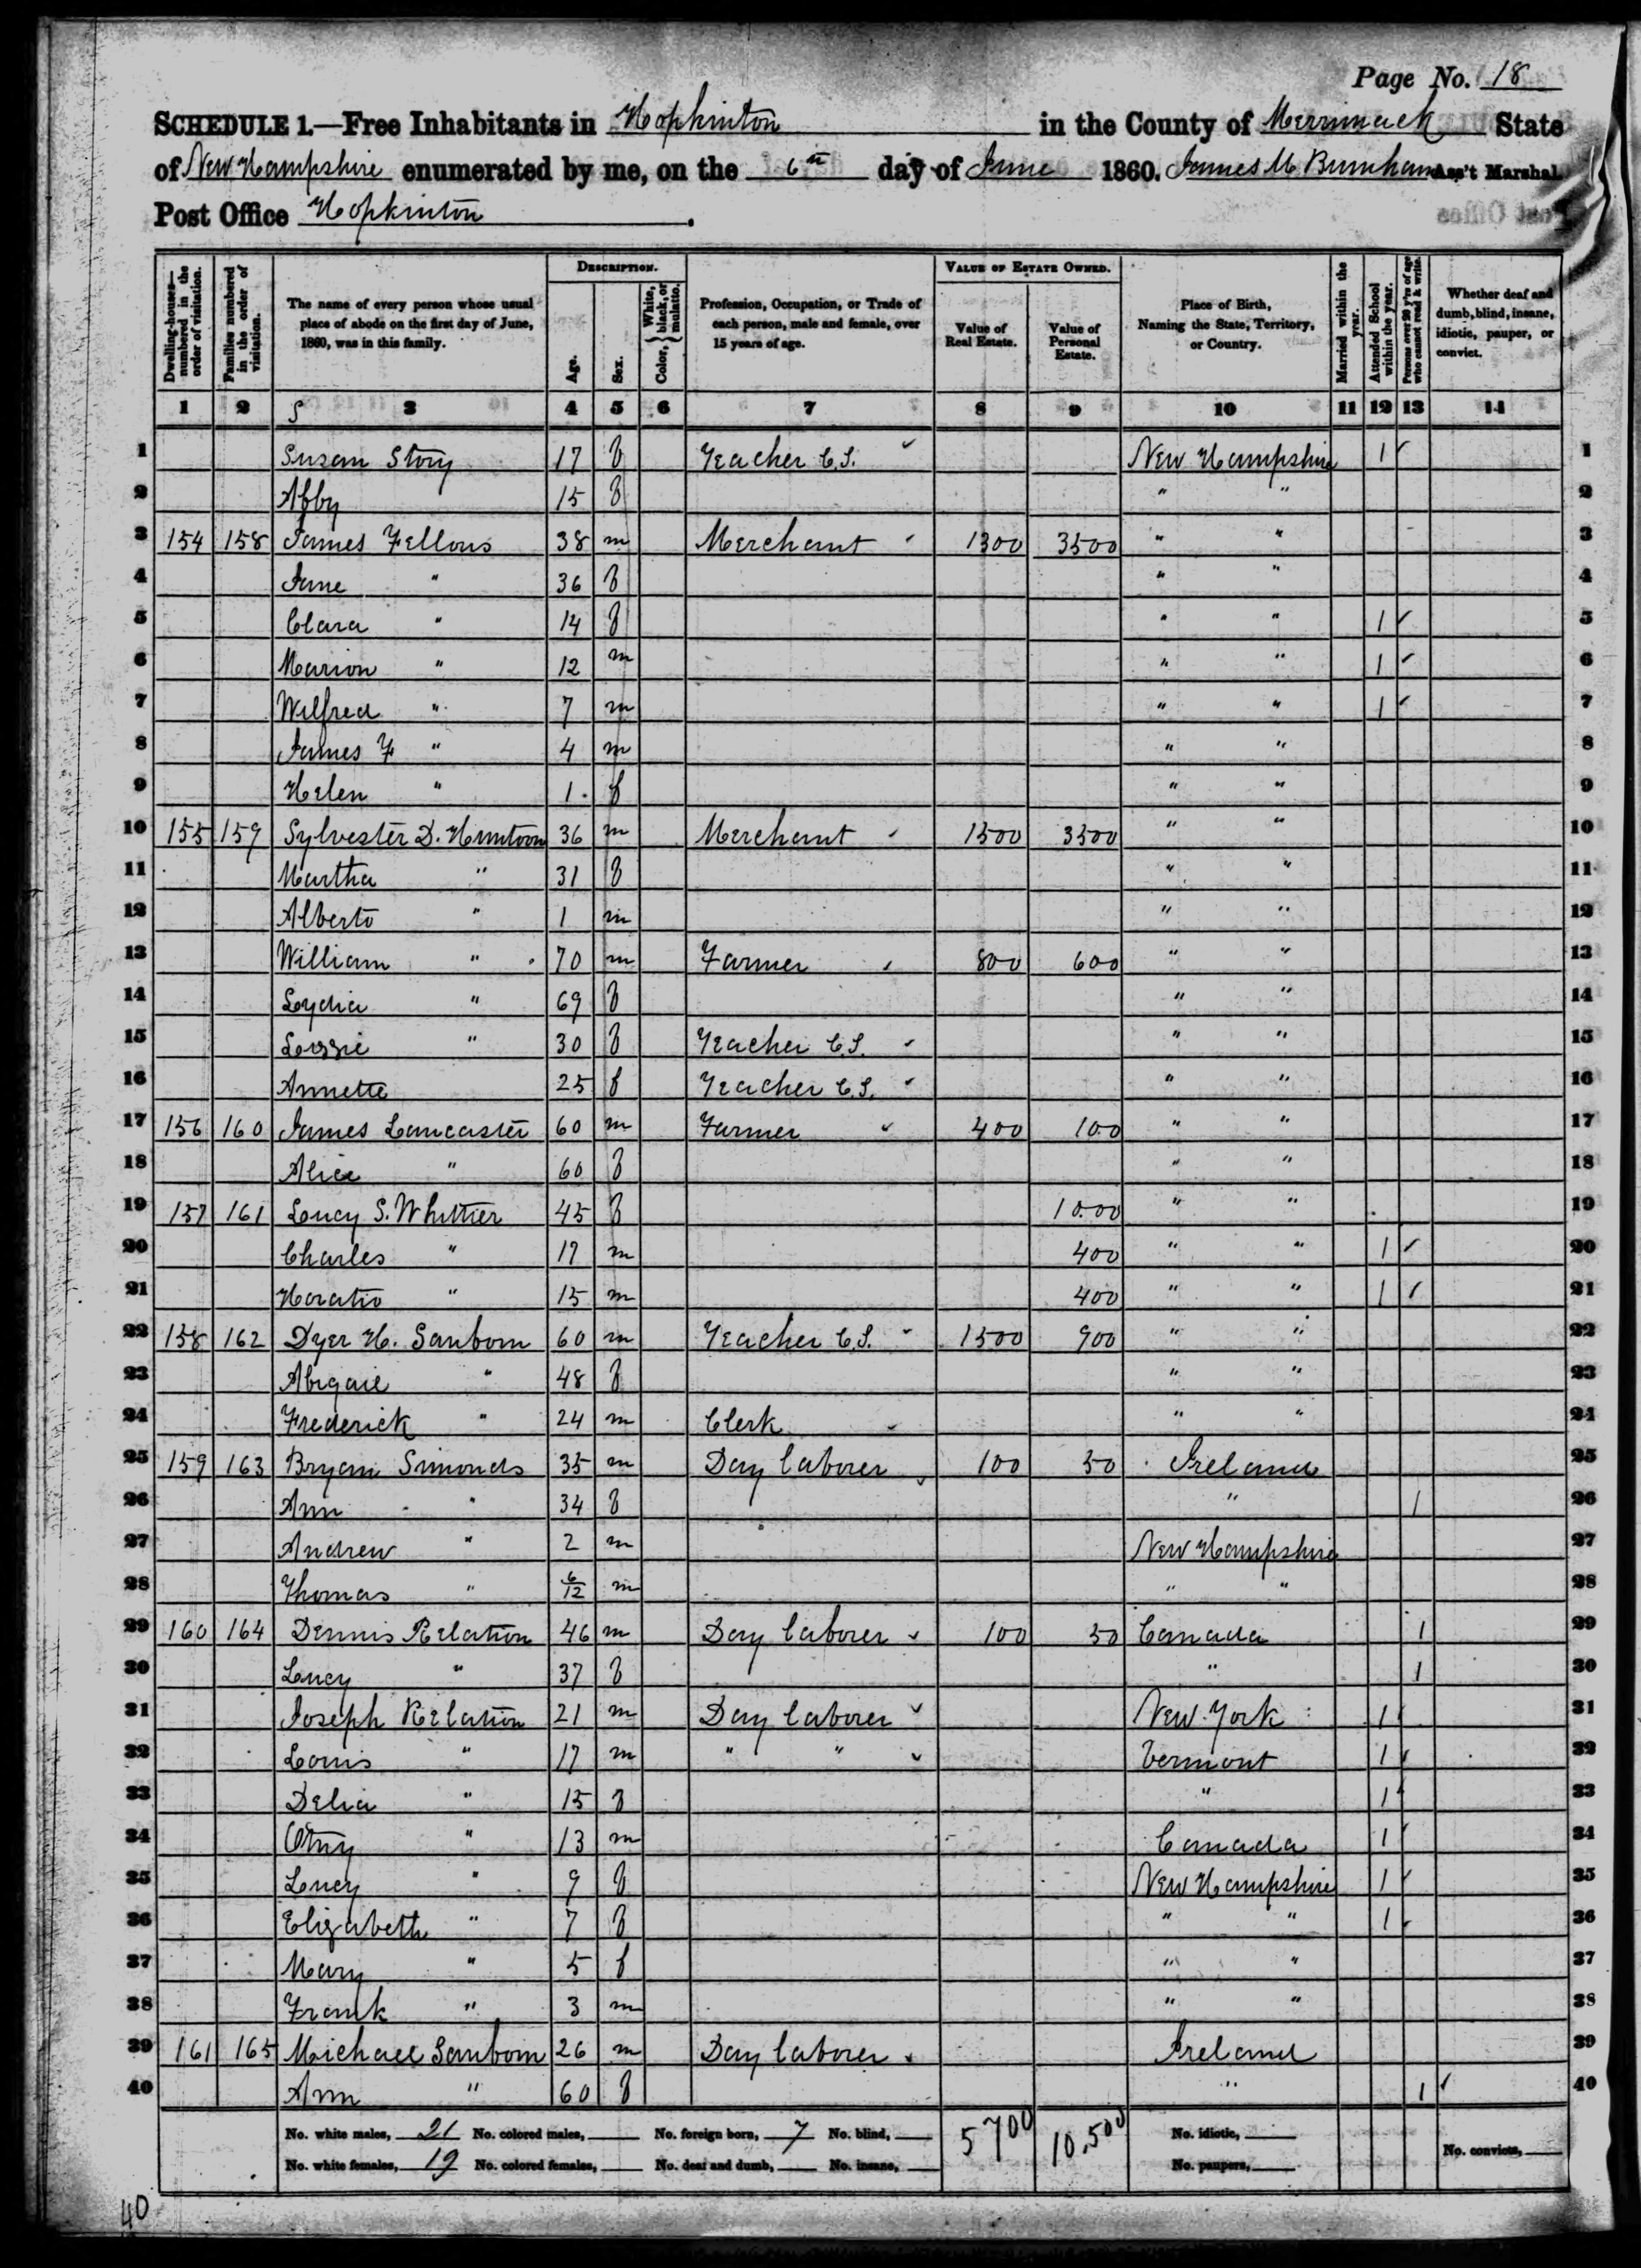 Page No. 18
SCHEDULE 1.—Free Inhabitants in Hopkinton in the County of Merrimack State
of New Hampshire enumerated by me, on the 6th day of June 1860. James M Burnham Ass't Marshal.
Post Office Hopkinton.
Dwelling-houses—numbered in the order of visitation.
Families numbered in the order of visitation.
The name of every person whose usual place of abode on the first day of June, 1860, was in this family.
DESCRIPTION.
Age.
Sex.
Color, { White, black, or mulatto.
Profession, Occupation, or Trade of each person, male and female, over 15 years of age.
VALUE OF ESTATE OWNED.
Value of Real Estate.
Value of Personal Estate.
Place of Birth, Naming the State, Territory, or Country.
Married within the year.
Attended School within the year.
Persons over 20 y'rs of age who cannot read & write.
Whether deaf and dumb, blind, insane, idiotic, pauper, or convict.
1 2 3 4 5 6 7 8 9 10 11 12 13 14
1 Susan Story 17 f Teacher C.S. ✓ New Hampshire 1 ✓ 1
2 Abby 15 f " " 2
3 154 158 James Fellows 38 m Merchant 1300 3500 " " 3
4 Jane " 36 f " " 4
5 Clara " 14 f " " 1 ✓ 5
6 Marion " 12 m " " 1 ✓ 6
7 Wilfred " 7 m " " 1 ✓ 7
8 James F " 4 m " " 8
9 Helen " 1 f " " 9
10 155 159 Sylvester D. Huntoon 36 m Merchant 1500 3500 " " 10
11 Martha " 31 f " " 11
12 Alberto " 1 m " " 12
13 William " 70 m Farmer 800 600 " " 13
14 Lydia " 69 f " " 14
15 Lizzie " 30 f Teacher C.S. ✓ " " 15
16 Annette 25 f Teacher C.S. ✓ " " 16
17 156 160 James Lancaster 60 m Farmer ✓ 400 100 " " 17
18 Alice " 60 f " " 18
19 157 161 Lucy S. Whittier 45 f 1000 " " 19
20 Charles " 17 m 400 " " 1 ✓ 20
21 Horatio " 15 m 400 " " 1 ✓ 21
22 158 162 Dyer H. Sanborn 60 m Teacher C.S. 1500 900 " " 22
23 Abigail " 48 f " " 23
24 Frederick " 24 m Clerk ✓ " " 24
25 159 163 Bryan Simonds 35 m Day laborer ✓ 100 50 Ireland 25
26 Ann " 34 f " 1 26
27 Andrew " 2 m New Hampshire 27
28 Thomas " 6/12 m " " 28
29 160 164 Dennis Relation 46 m Day laborer ✓ 100 50 Canada 1 29
30 Lucy " 37 f " 1 30
31 Joseph Relation 21 m Day laborer ✓ New York 1 31
32 Louis " 17 m " " ✓ Vermont 1 ✓ 32
33 Delia " 15 f " 1 33
34 " 13 m Canada 1 34
35 Lucy " 9 f New Hampshire 1 ✓ 35
36 Elizabeth " 7 f " " 1 ✓ 36
37 Mary " 5 f " " 37
38 Frank " 3 m " " 38
39 161 165 Michael Sanborn 26 m Day laborer ✓ Ireland 39
40 Ann " 60 f " 1 ✓ 40
No. white males, 21 No. colored males, No. foreign born, 7 No. blind, 5700 10,500 No. idiotic,
No. white females, 19 No. colored females, No. deaf and dumb, No. insane, No. paupers, No. convicts,
40